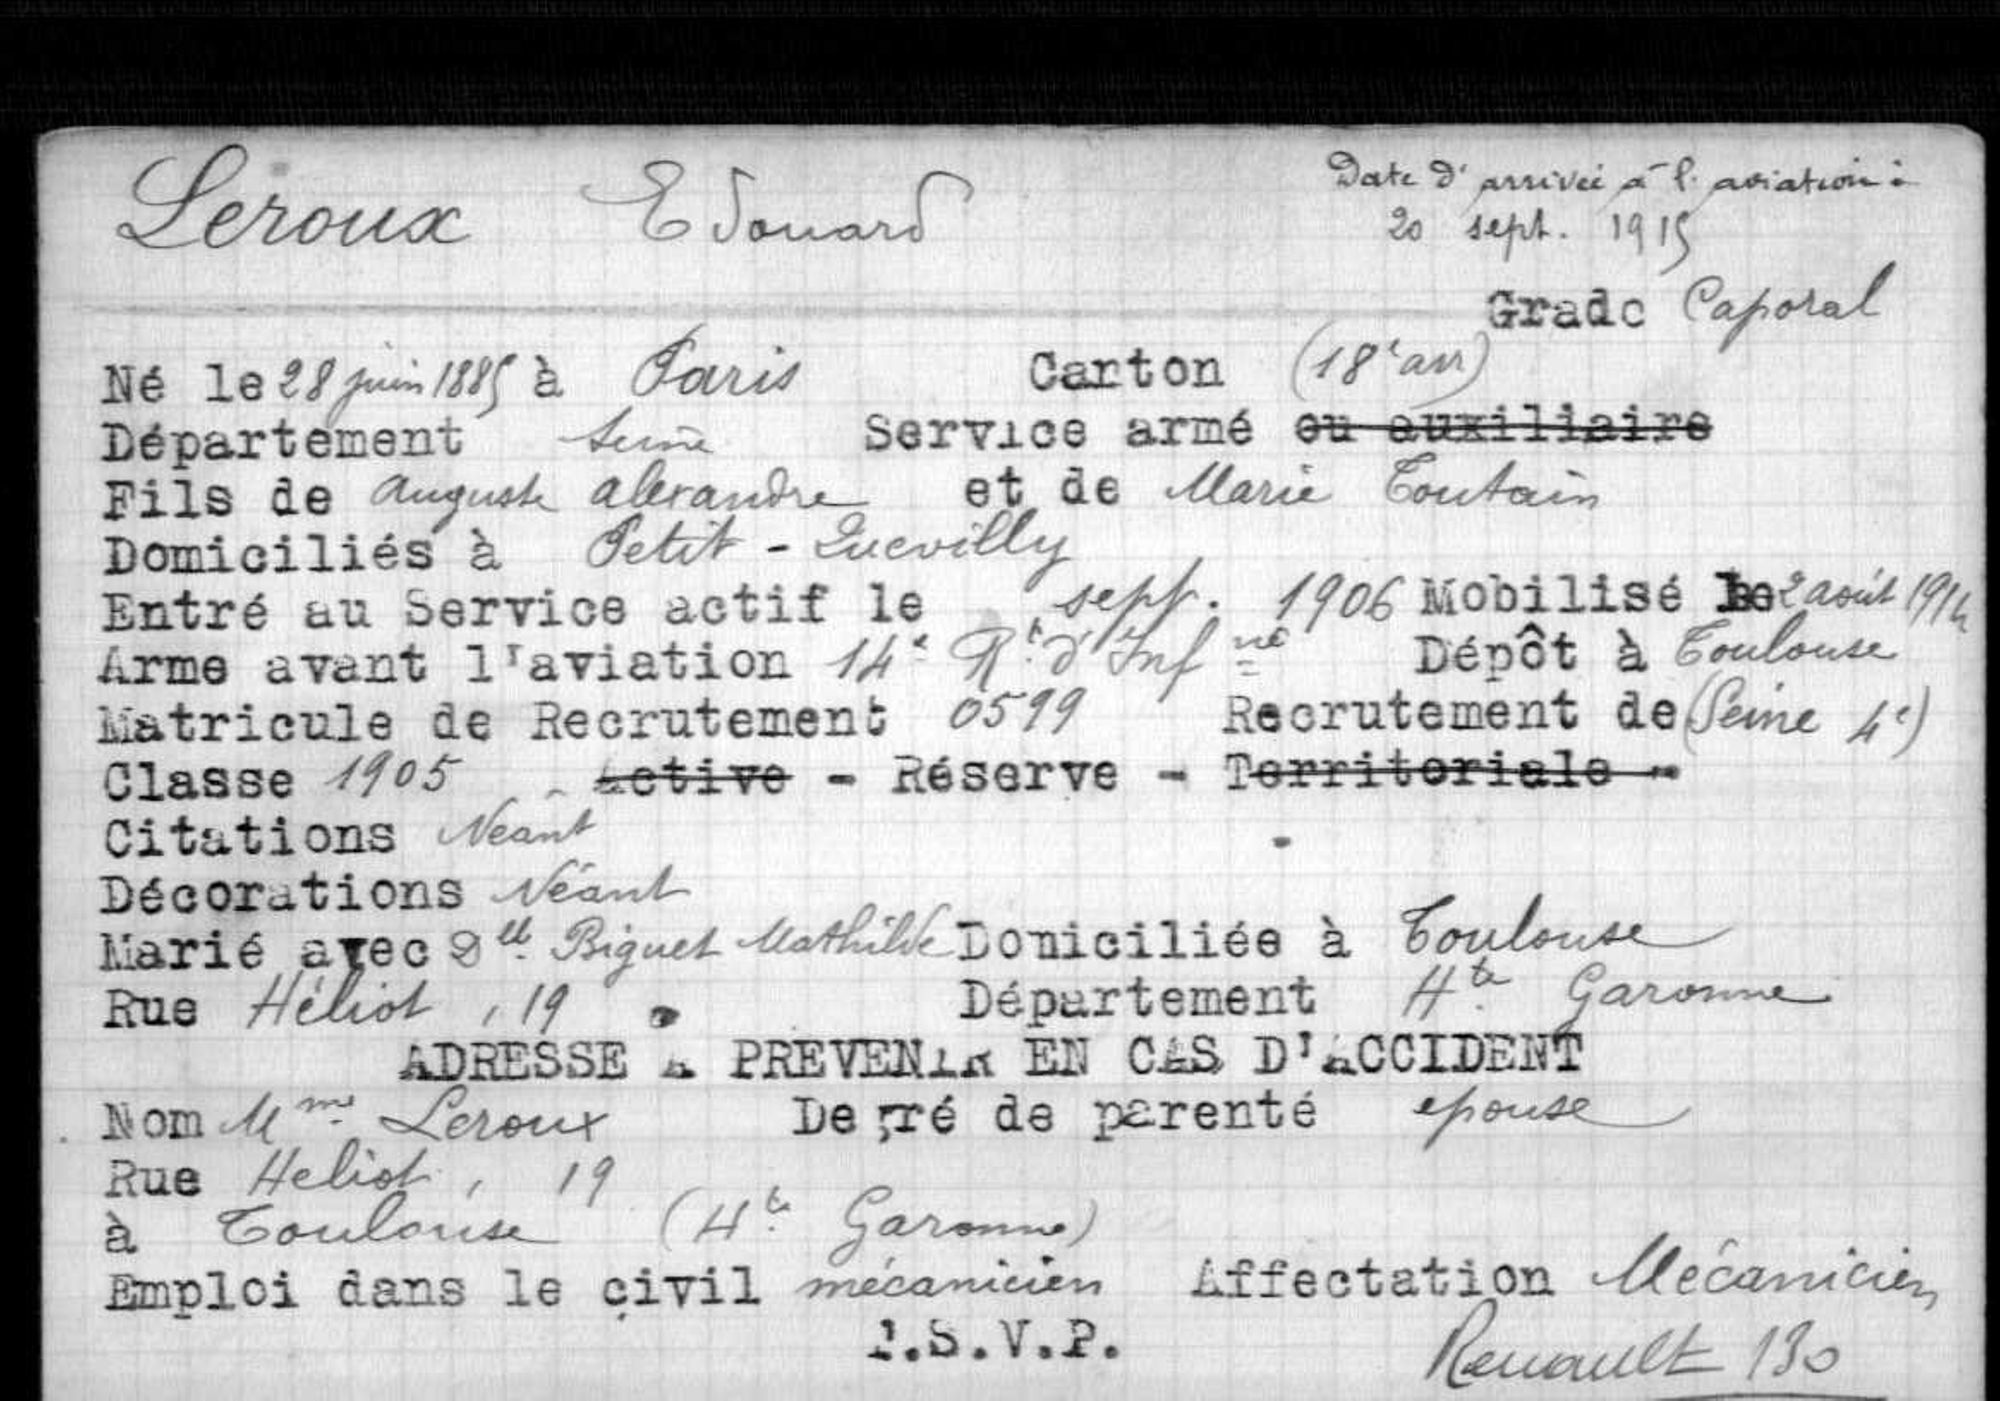 Leroux Edouard
Date d'arrivée à l'aviation :
20 sept. 1915
Grade Caporal
Né le 28 juin 1885 à Paris Canton (18e arr)
Département Seine Service armé ou auxiliaire
Fils de Auguste Alexandre et de Marie Toutain
Domiciliés à Petit-Quevilly
Entré au Service actif le sept. 1906 Mobilisé le 2 août 1914
Arme avant l'aviation 14e Rt d'Infrie Dépôt à Toulouse
Matricule de Recrutement 0599 Recrutement de (Seine 4e)
Classe 1905 Active - Réserve - Territoriale -
Citations Néant
Décorations Néant
Marié avec Dlle Biguet Mathilde Domiciliée à Toulouse
Rue Héliot, 19 Département Hte Garonne
ADRESSE A PREVENIR EN CAS D'ACCIDENT
Nom Mme Leroux Degré de parenté epouse
Rue Heliot, 19
à Toulouse (Hte Garonne)
Emploi dans le civil mécanicien Affectation Mécanicien
T.S.V.P.
Renault 130